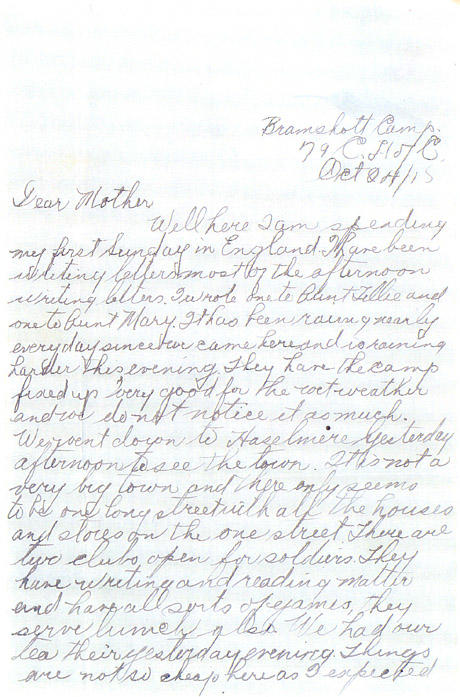 Bramshott Camp.
79 C. H of C.
Oct 24/15
Dear Mother
Well here I am spending
my first Sunday in England. I have been
writing letters most of the afternoon
writing letters. I wrote one to Aunt Tillie and
one to Aunt Mary. It has been raining nearly
every day since we came here and is raining
harder this evening. They have the camp
fixed up very good for the wet weather
and we do not notice it as much.
We went down to Haselmere yesterday
afternoon to see the town. It is not a
very big town and there only seems
to be one long street with all the houses
and stores on the one street. There are
two clubs open for soldiers. They
have writing and reading matter
and have all sorts of games, they
serve lunch also. We had our
tea their yesterday evening. Things
are not so cheap here as I expected